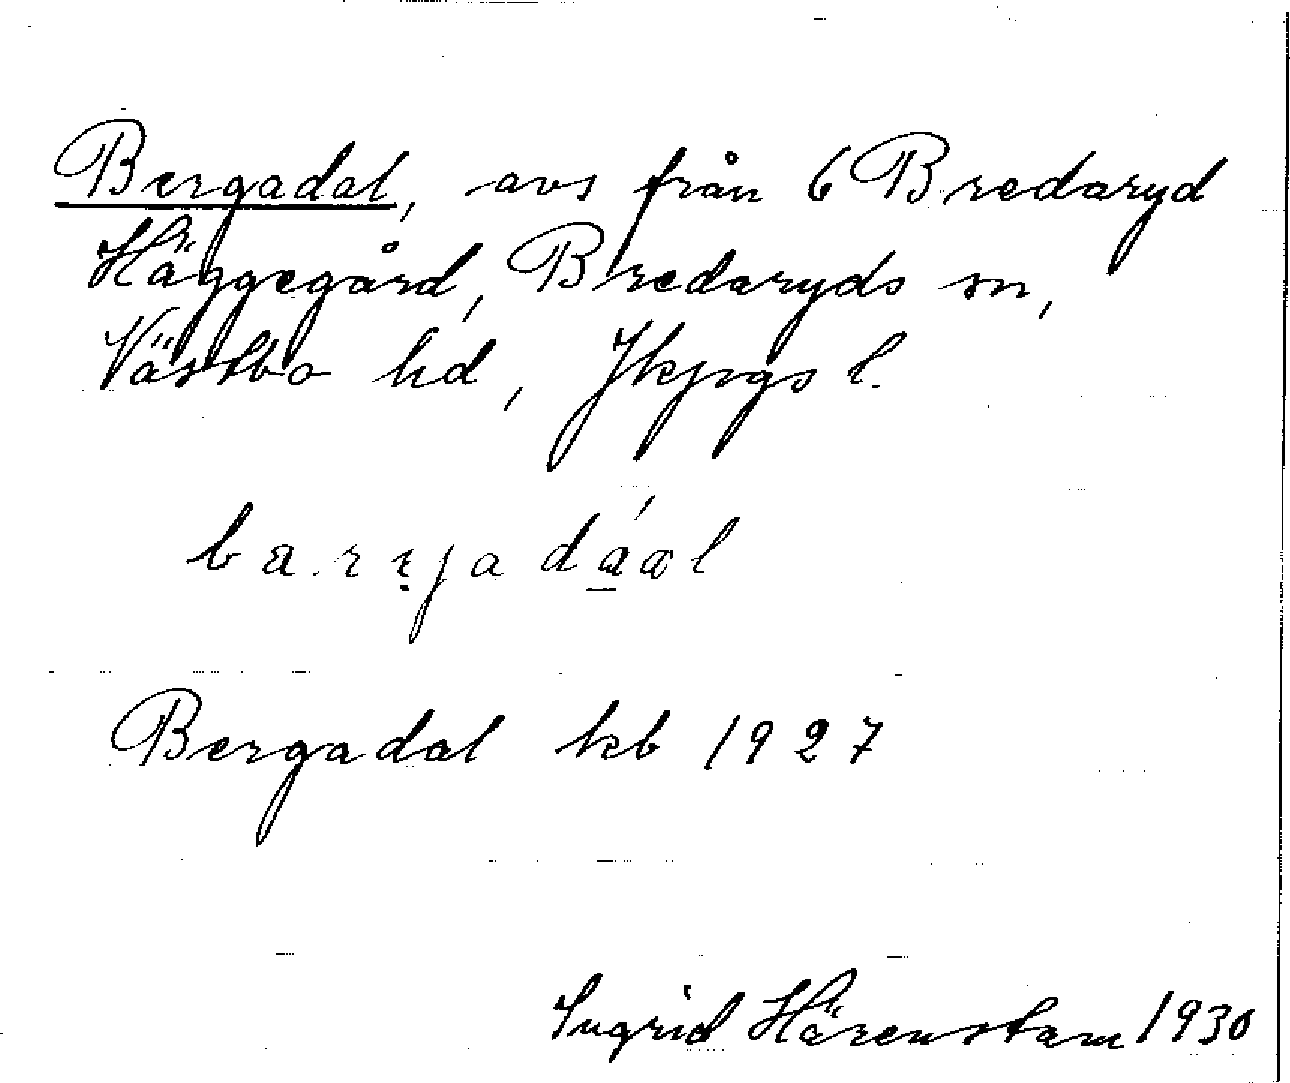 Bergadal, avs från 6 Bredaryd
Häggegård, Bredaryds sn,
Västbo hd, Jkpgs l.
barıjadáal
Bergadal kb 1927
Ingrid Härenstam 1930